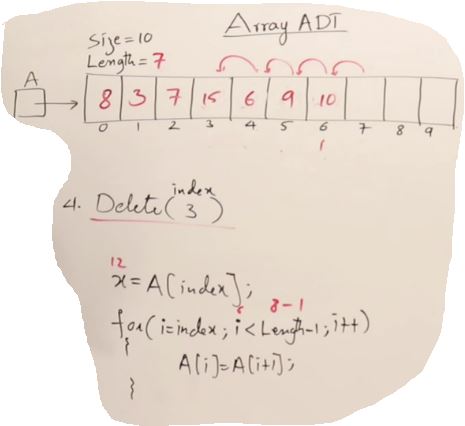 Array ADT
Size=10
Length=7
A
8 3 7 15 6 9 10
0 1 2 3 4 5 6 7 8 9
4. Delete(3)
index
12
x=A[index];
8-1
for(i=index; i<Length-1; i++)
{
A[i]=A[i+1];
}